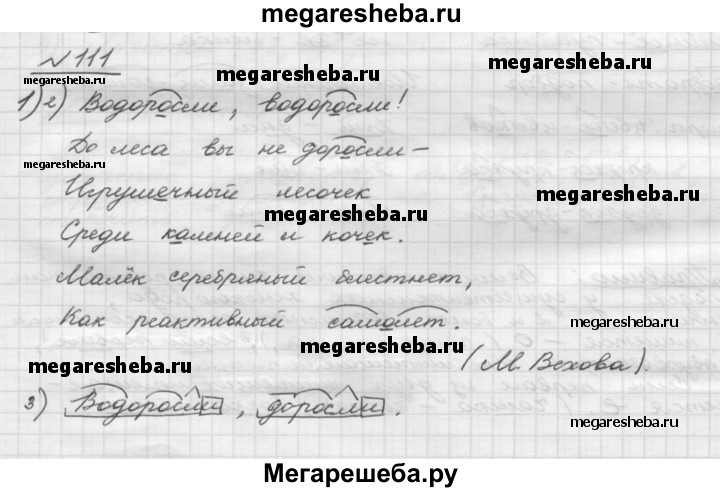 megaresheba.ru
№ 111
megaresheba.ru
megaresheba.ru
megaresheba.ru
1) 2) Водоросли, водоросли!
До леса вы не доросли –
megaresheba.ru
Игрушечный лесочек
megaresheba.ru
megaresheba.ru
Среди камней и кочек.
Малёк серебряный блестнет,
Как реактивный самолет.
megaresheba.ru
megaresheba.ru
megaresheba.ru
(М. Вехова).
3) Водоросли, доросли.
megaresheba.ru
Мегарешеба.ру